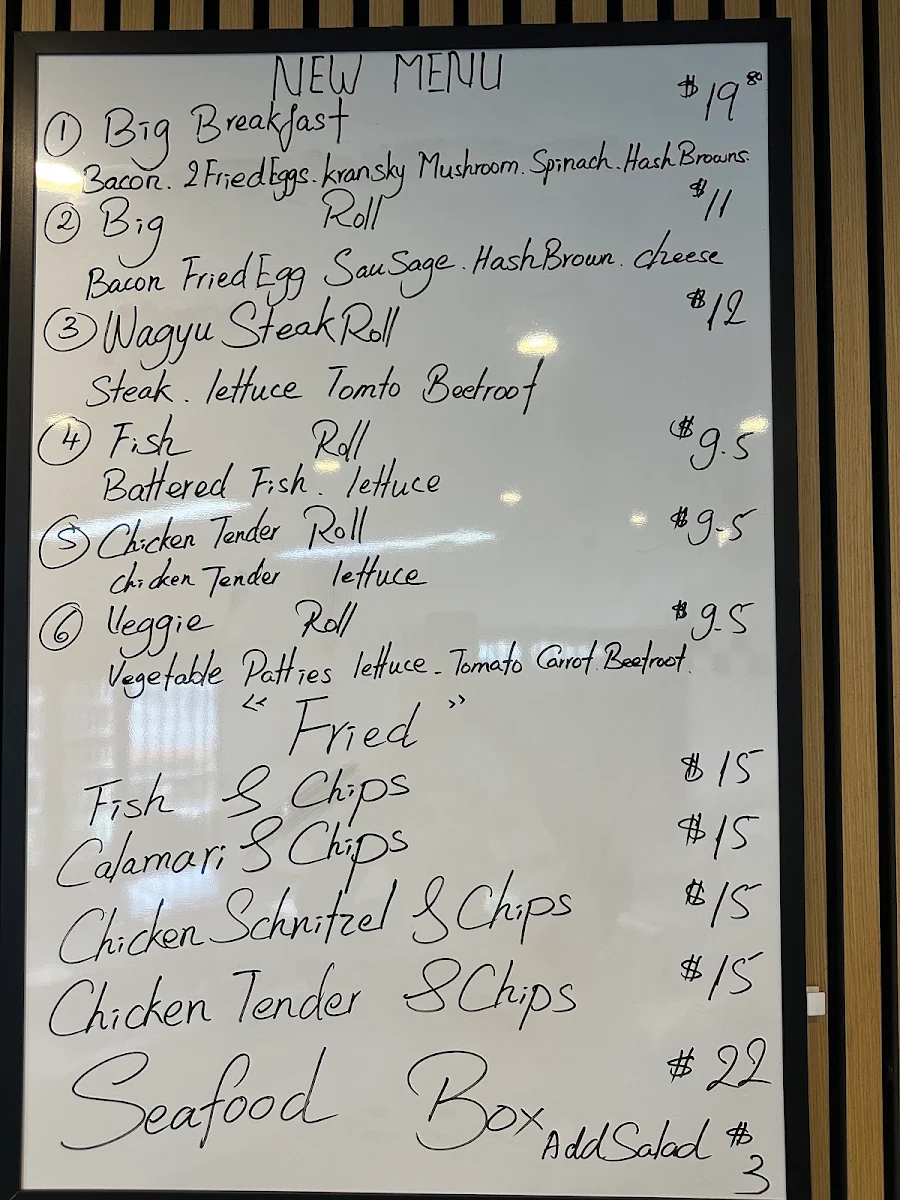 NEW MENU
① Big Breakfast $19⁸⁰
Bacon. 2 Fried Eggs. kransky Mushroom. Spinach. Hash Browns.
② Big Roll $11
Bacon Fried Egg SauSage. Hash Brown. cheese
③ Wagyu Steak Roll $12
Steak. lettuce Tomto Beetroot
④ Fish Roll $9.5
Battered Fish. lettuce
⑤ Chicken Tender Roll $9.5
chicken Tender lettuce
⑥ Veggie Roll $9.5
Vegetable Patties lettuce. Tomato Carrot. Beetroot.
"Fried"
Fish & Chips $15
Calamari & Chips $15
Chicken Schnitzel & Chips $15
Chicken Tender & Chips $15
Seafood Box $22
Add Salad $3